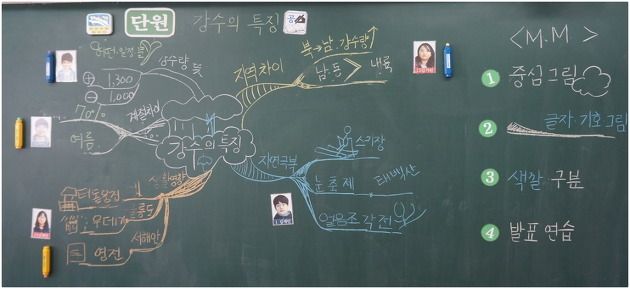 단원 강수의 특징
강수량 뜻
+ 1,300
- 1,000
계절차이
70%
여름
지역차이
북→남, 강수량↑
남·동 > 내륙
강수의 특징
자연극복
스키장
눈축제 태백산
얼음조각전
생활영향
터돋움집
우데기 울릉도
염전 서해안
<M.M>
1 중심그림
2 글자·기호 그림
3 색깔 구분
4 발표 연습